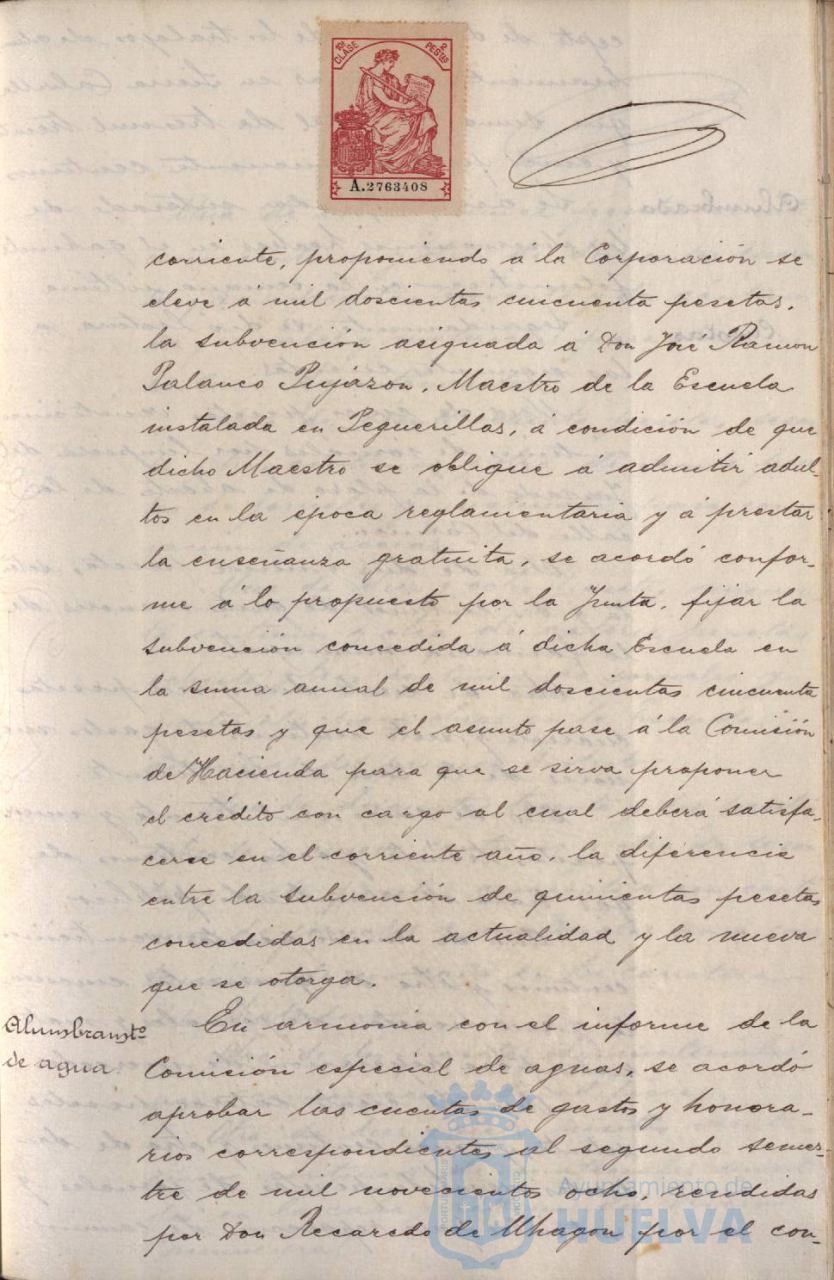 10ª CLASE 2 PESETAS
A.2763408
corriente, proponiendo á la Corporación se
eleve á mil doscientas cincuenta pesetas,
la subvención asignada á Don José Ramon
Palanco Pujazon, Maestro de la Escuela
instalada en Peguerillas, á condición de que
dicho Maestro se obligue á admitir adul-
tos en la época reglamentaria y á prestar
la enseñanza gratuita, se acordó confor-
me á lo propuesto por la Junta, fijar la
subvención concedida á dicha Escuela en
la suma anual de mil doscientas cincuenta
pesetas y que el asunto pase á la Comisión
de Hacienda para que se sirva proponer
el crédito con cargo al cual deberá satisfa-
cerse en el corriente año, la diferencia
entre la subvención de quinientas pesetas
concedidas en la actualidad y la nueva
que se otorga.
Alumbramto
de agua
En armonia con el informe de la
Comisión especial de aguas, se acordó
aprobar las cuentas de gastos y honora-
rios correspondientes al segundo semes-
tre de mil novecientos ocho, rendidas
por Don Recaredo de Uhagon por el con-
Ayuntamiento de
HUELVA